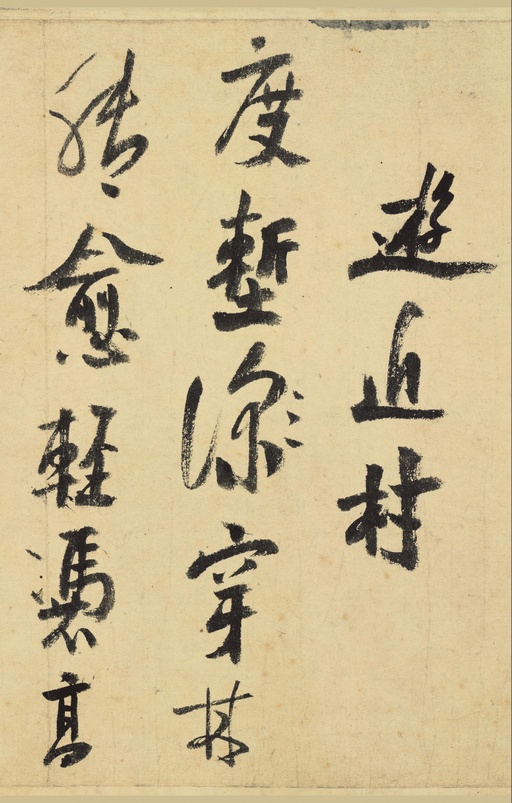 遊近村
度塹穿林
脚愈輕憑高